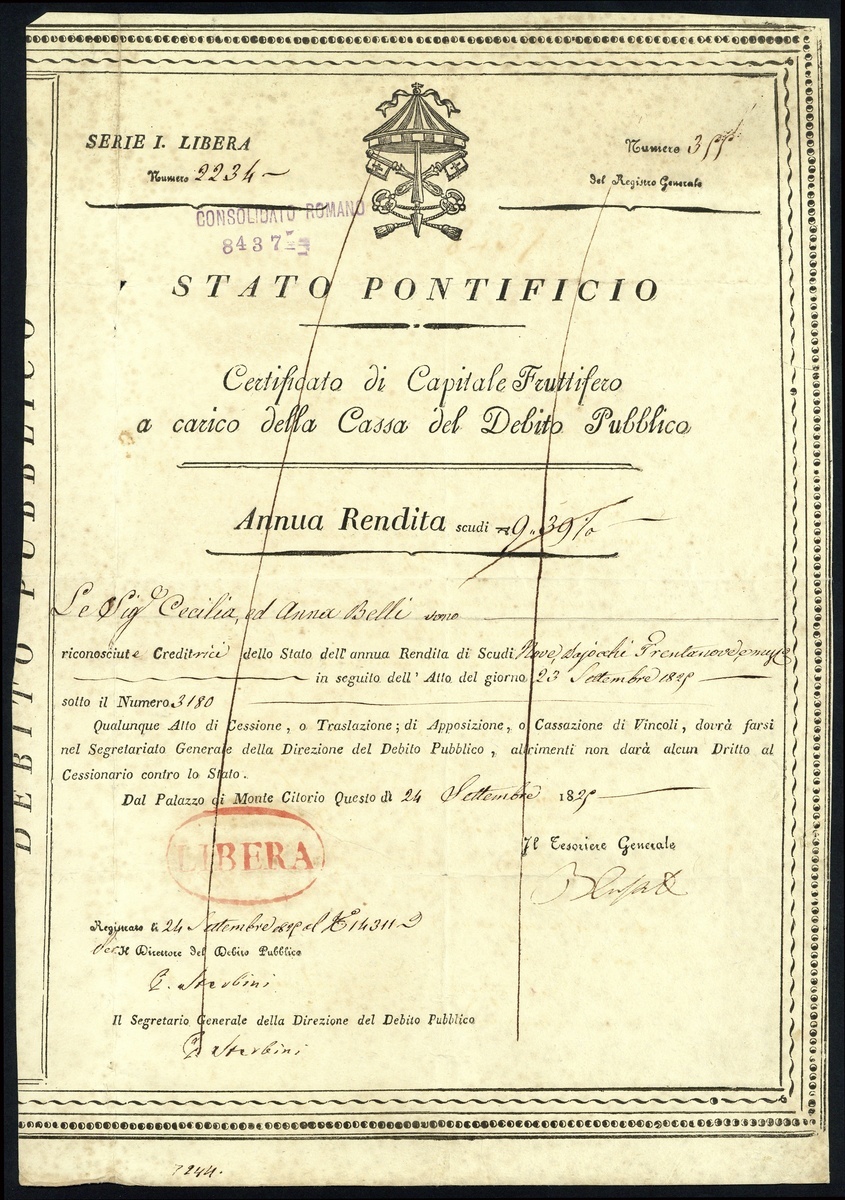 SERIE I. LIBERA
Numero 2234
Numero
del Registro Generale
CONSOLIDATO ROMANO
8437
STATO PONTIFICIO
Certificato di Capitale Fruttifero
a carico della Cassa del Debito Pubblico
Annua Rendita scudi 9:39
DEBITO PUBBLICO
Le Sig.e Cecilia, ed Anna Belli sono
riconosciute Creditrici dello Stato dell'annua Rendita di Scudi Nove, bajocchi Trentanove, e mezzo
in seguito dell'Atto del giorno 23 Settembre
sotto il Numero 3180
Qualunque Atto di Cessione, o Traslazione; di Apposizione, o Cassazione di Vincoli, dovrà farsi
nel Segretariato Generale della Direzione del Debito Pubblico, altrimenti non darà alcun Dritto al
Cessionario contro lo Stato.
Dal Palazzo di Monte Citorio Questo dì 24 Settembre
LIBERA
Il Tesoriere Generale
Registrato li 24 Settembre al N° 14311
Il Direttore del Debito Pubblico
Sterbini
Il Segretario Generale della Direzione del Debito Pubblico
Sterbini
7244.